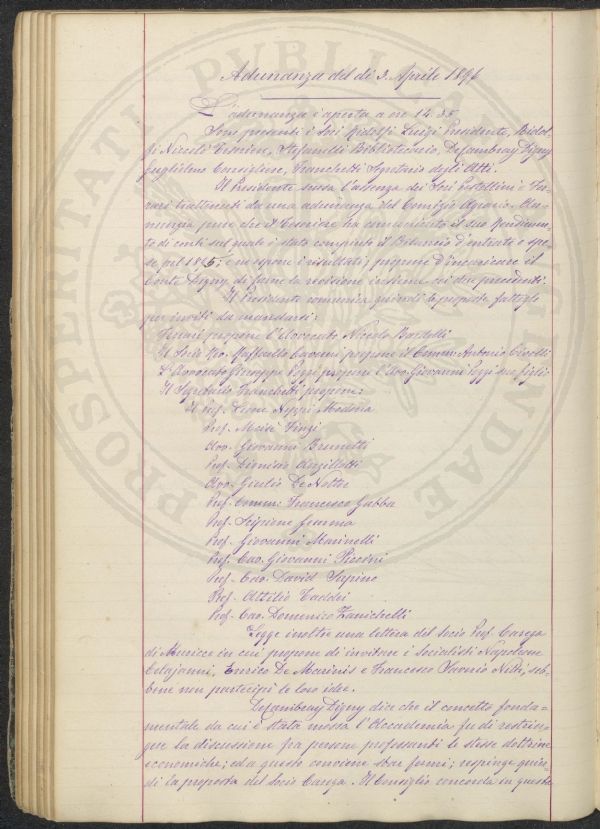 Adunanza del dì 3. Aprile 1896
L'adunanza è aperta a ore 14 35
Sono presenti i Soci Ridolfi Luigi Presidente, Ridol-
fi Niccolò Tesoriere, Stefanelli Bibliotecario, De Cambray Digny
Guglielmo Consigliere, Franchetti Segretario degli Atti.
Il Presidente scusa l'assenza dei Soci Pestellini e Fer-
rari trattenuti da una adunanza del Comizio Agrario. An-
nunzia pure che il Tesoriere ha comunicato il suo Rendimen-
to di conti sul quale è stato compiuto il Bilancio d'entrata e spe-
se pel 1895; e ne espone i resultati; propone d'incaricare il
Conte Digny di farne la revisione insieme coi due precedenti.
Il Presidente comunica quindi le proposte fattegli
per inviti da mandarsi:
Ferrari propone l'Avvocato Niccolò Bardelli
Il Socio Avv. Raffaello propone il Comm. Antonio Civelli
L'Avvocato Giuseppe Pozzi propone l'Avv. Giovanni Pozzi suo figlio
Il Segretario Franchetti propone:
Il Prof. Leone Neppi Modona
Prof. Moisè Finzi
Avv. Giovanni Brunetti
Prof. Dionisio Anzilotti
Avv. Giulio De Notter
Prof. Comm. Francesco Gabba
Prof. Scipione Gemma
Prof. Giovanni Marinelli
Prof. Cav. Giovanni
Prof. Cav. David Supino
Prof. Attilio Taddei
Prof. Cav. Domenico Zanichelli
Legge inoltre una lettera del Socio Prof. Carega
di Muricce in cui propone di invitare i Socialisti Napoleone
Colajanni, Enrico De Marinis e Francesco Saverio Nitti, seb-
bene non partecipi le loro idee.
De Cambray Digny dice che il concetto fonda-
mentale da cui è stata mossa l'Accademia fu di restrin-
gere la discussione fra persone professanti le stesse dottrine
economiche; ed a questo conviene star fermi; respinge quin-
di la proposta del Socio Carega. Il Consiglio concorda in queste
PROSPERITATI PVBLICAE AVGENDAE